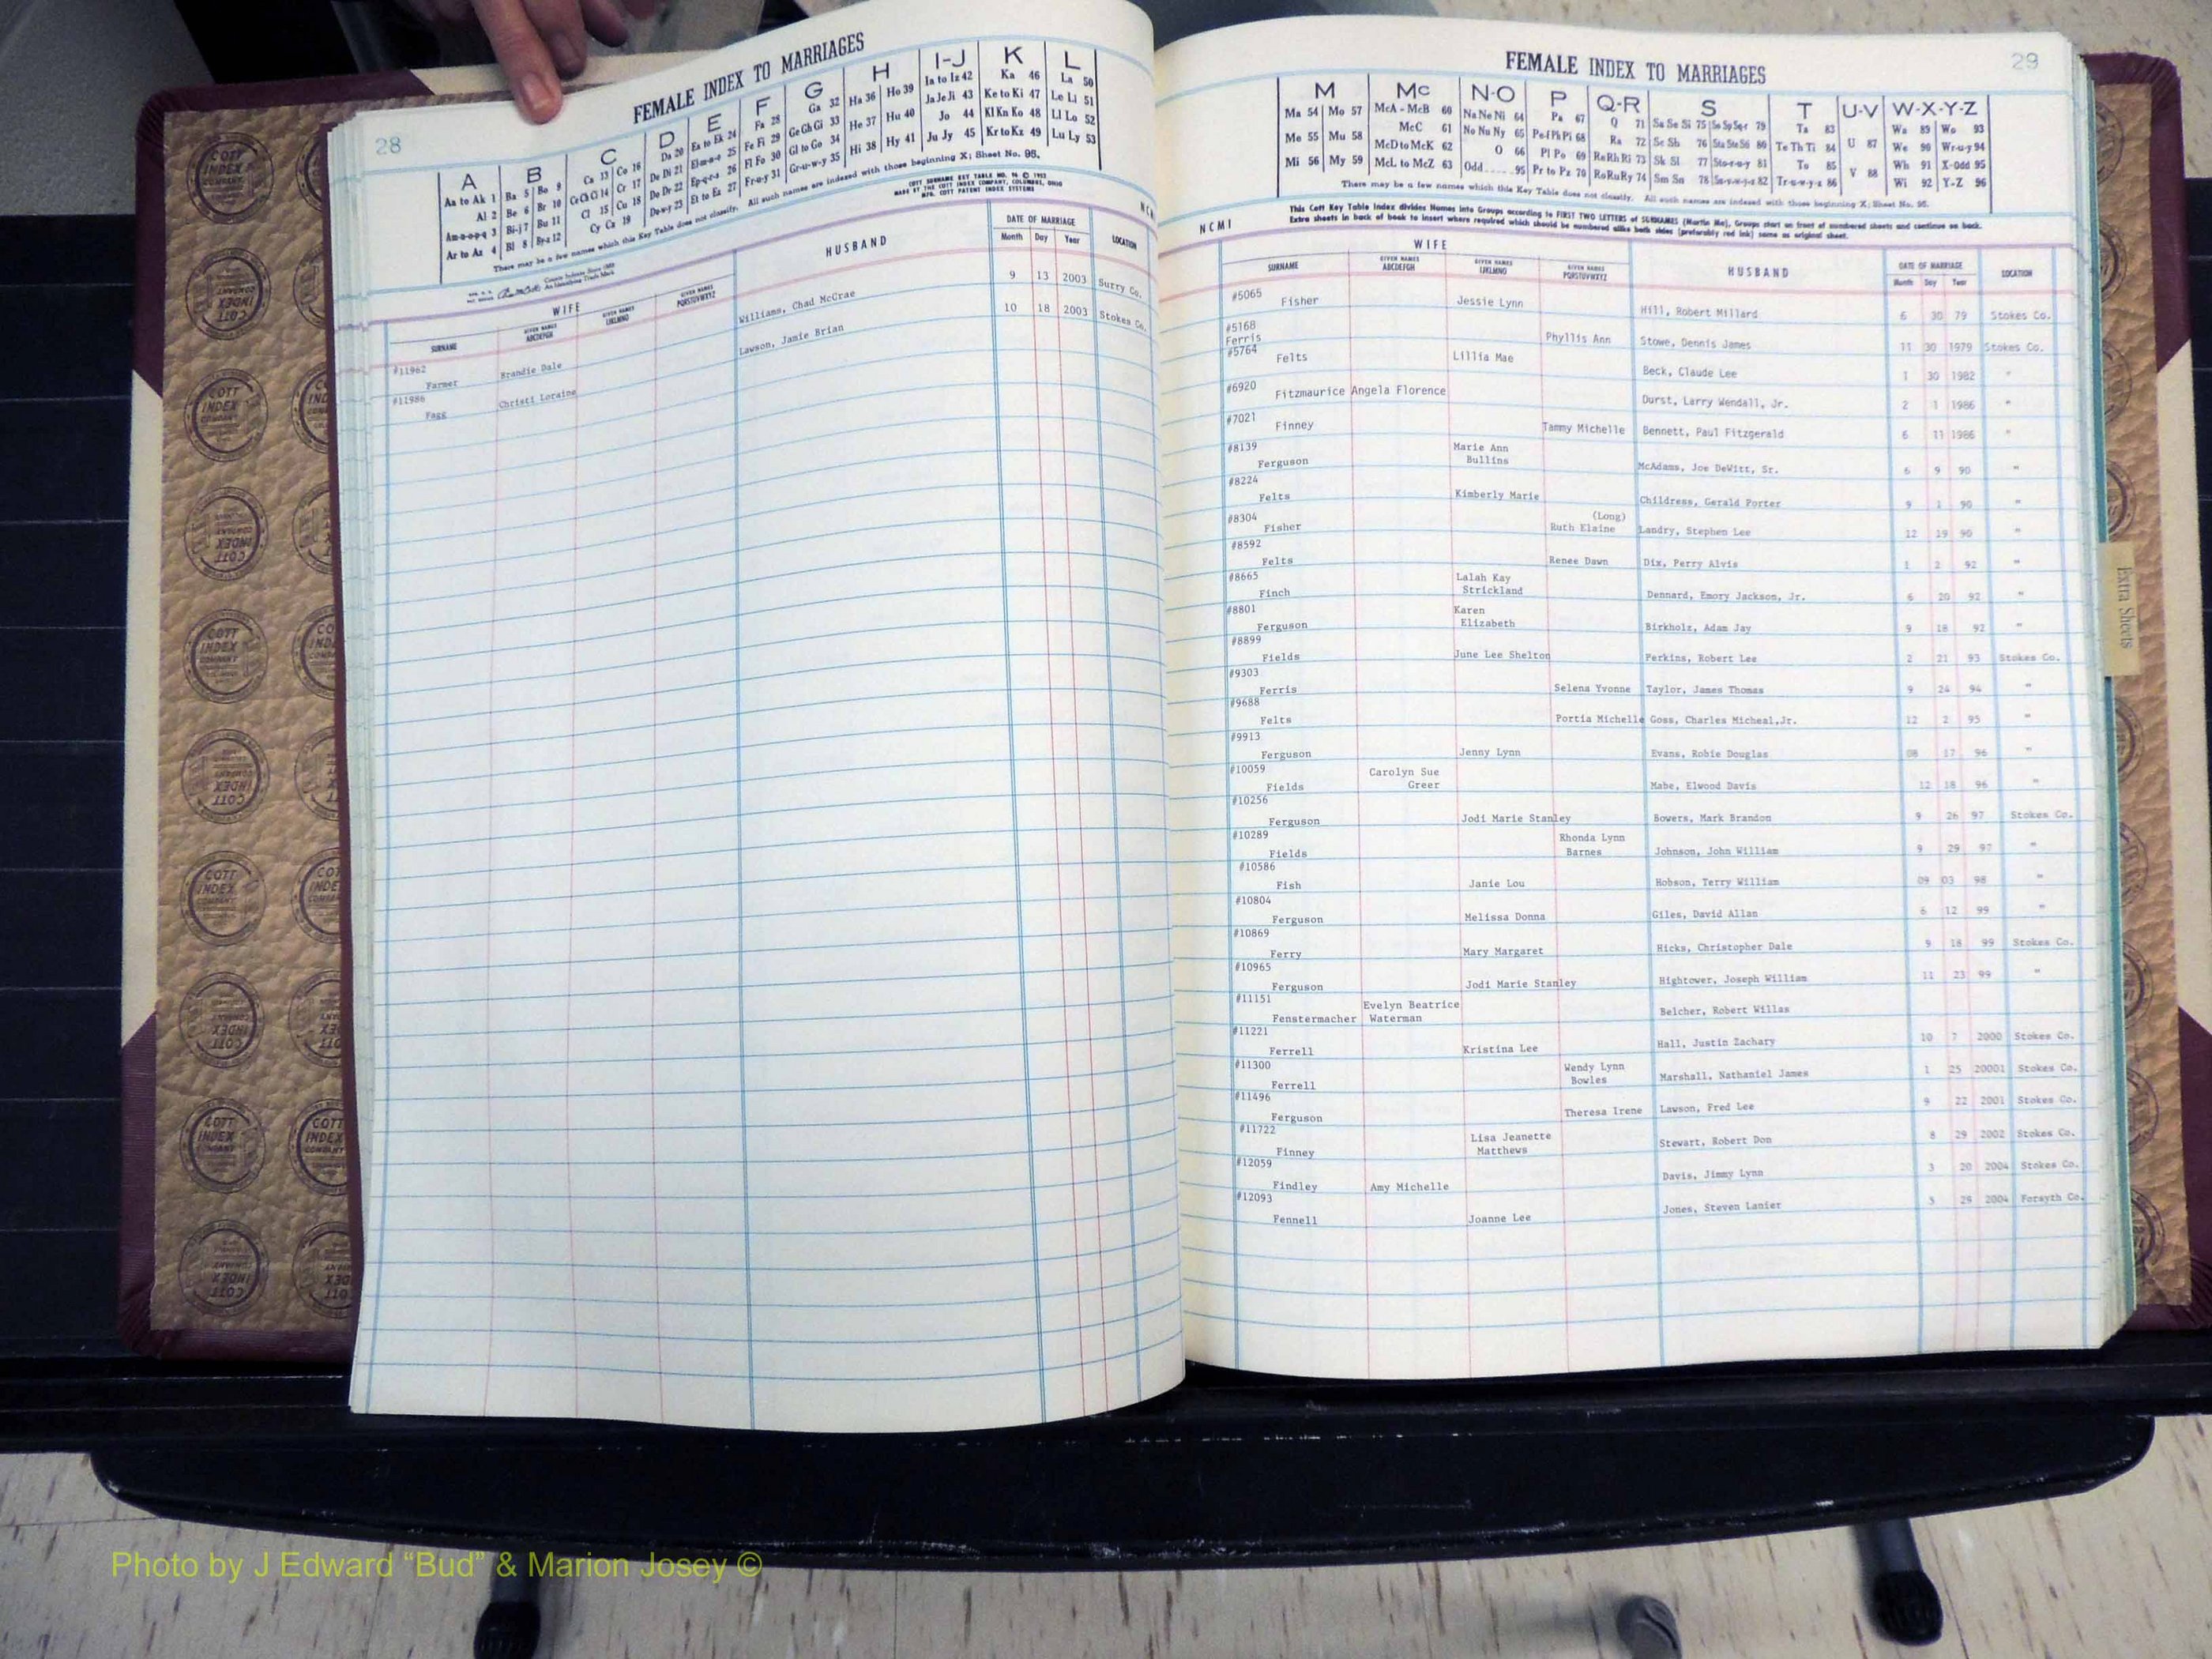 28
FEMALE INDEX TO MARRIAGES
A B C D E F G H I-J K L
Aa to Ak 1 Ba 5 Bo 9 Ca 13 Co 16 Da 20 Ea to Ek 24 Fa 28 Ga 32 Ha 36 Ho 39 Ia to Iz 42 Ka 46 La 50
Al 2 Be 6 Br 10 Ce Ch Ci 14 Cr 17 De Di 21 El-m-n-o 25 Fe Fi 29 Ge Gh Gi 33 He 37 Hu 40 Ja Je Ji 43 Ke to Ki 47 Le Li 51
Am-n-o-p-q 3 Bi-j 7 Bu 11 Cl 15 Cu 18 Do Dr 22 Ep-q-r-s 26 Fl Fo 30 Gl to Go 34 Hi 38 Hy 41 Jo 44 Kl Kn Ko 48 Ll Lo 52
Ar to Az 4 Bl 8 By-z 12 Cy Cz 19 Du-w-y 23 Et to Ez 27 Fr-u-y 31 Gr-u-w-y 35 Ju Jy 45 Kr to Kz 49 Lu Ly 53
There may be a few names which this Key Table does not classify. All such names are indexed with those beginning X; Sheet No. 95.
COTT SURNAME KEY TABLE NO. 96 © 1953
MADE BY THE COTT INDEX COMPANY, COLUMBUS, OHIO
MFG. COTT PATENT INDEX SYSTEMS
WIFE HUSBAND DATE OF MARRIAGE LOCATION
SURNAME GIVEN NAMES ABCDEFGH GIVEN NAMES IJKLMNO GIVEN NAMES PQRSTUVWXYZ Month Day Year
#11962
Farmer Brandie Dale Williams, Chad McCrae 9 13 2003 Surry Co.
#11986
Fagg Christi Loraine Lawson, Jamie Brian 10 18 2003 Stokes Co.
FEMALE INDEX TO MARRIAGES
29
M Mc N-O P Q-R S T U-V W-X-Y-Z
Ma 54 Mo 57 McA - McB 60 Na Ne Ni 64 Pa 67 Q 71 Sa Se Si 75 So Sp Sq-r 79 Ta 83 U 87 Wa 89 Wo 93
Me 55 Mu 58 McC 61 No Nu Ny 65 Pe-f Ph Pi 68 Ra 72 Sc Sh 76 Sta Ste Sti 80 Te Th Ti 84 V 88 We 90 Wr-u-y 94
Mi 56 My 59 McD to McK 62 O 66 Pl Po 69 Re Rh Ri 73 Sk Sl 77 Sto-r-u-y 81 To 85 Wh 91 X-Odd 95
McL to McZ 63 Odd.....95 Pr to Pz 70 Ro Ru Ry 74 Sm Sn 78 Su-v-w-y-z 82 Tr-u-w-y-z 86 Wi 92 Y-Z 96
There may be a few names which this Key Table does not classify. All such names are indexed with those beginning X; Sheet No. 95.
This Cott Key Table Index divides Names into Groups according to FIRST TWO LETTERS of SURNAMES (Martin Ma), Groups start on front of numbered sheets and continue on back.
Extra sheets in back of book to insert where required which should be numbered alike both sides (preferably red ink) same as original sheet.
NCMI
WIFE HUSBAND DATE OF MARRIAGE LOCATION
SURNAME GIVEN NAMES ABCDEFGH GIVEN NAMES IJKLMNO GIVEN NAMES PQRSTUVWXYZ Month Day Year
#5065
Fisher Jessie Lynn Hill, Robert Millard 6 30 79 Stokes Co.
#5168
Ferris Phyllis Ann Stowe, Dennis James 11 30 1979 Stokes Co.
#5764
Felts Lillia Mae Beck, Claude Lee 1 30 1982 "
#6920
Fitzmaurice Angela Florence Durst, Larry Wendall, Jr. 2 1 1986 "
#7021
Finney Tammy Michelle Bennett, Paul Fitzgerald 6 11 1986 "
#8139 Marie Ann
Ferguson Bullins McAdams, Joe DeWitt, Sr. 6 9 90 "
#8224
Felts Kimberly Marie Childress, Gerald Porter 9 1 90 "
#8304 (Long)
Fisher Ruth Elaine Landry, Stephen Lee 12 19 90 "
#8592
Felts Renee Dawn Dix, Perry Alvis 1 2 92 "
#8665 Lalah Kay
Finch Strickland Dennard, Emory Jackson, Jr. 6 20 92 "
#8801 Karen
Ferguson Elizabeth Birkholz, Adam Jay 9 18 92
#8899
Fields June Lee Shelton Perkins, Robert Lee 2 21 93 Stokes Co.
#9303
Ferris Selena Yvonne Taylor, James Thomas 9 24 94 "
#9688
Felts Portia Michelle Goss, Charles Micheal,Jr. 12 2 95 "
#9913
Ferguson Jenny Lynn Evans, Robie Douglas 08 17 96 "
#10059 Carolyn Sue
Fields Greer Mabe, Elwood Davis 12 18 96 "
#10256
Ferguson Jodi Marie Stanley Bowers, Mark Brandon 9 26 97 Stokes Co.
#10289 Rhonda Lynn
Fields Barnes Johnson, John William 9 29 97 "
#10586
Fish Janie Lou Hobson, Terry William 09 03 98 "
#10804
Ferguson Melissa Donna Giles, David Allan 6 12 99 "
#10869
Ferry Mary Margaret Hicks, Christopher Dale 9 18 99 Stokes Co.
#10965
Ferguson Jodi Marie Stanley Hightower, Joseph William 11 23 99 "
#11151 Evelyn Beatrice
Fenstermacher Waterman Belcher, Robert Willas
#11221
Ferrell Kristina Lee Hall, Justin Zachary 10 7 2000 Stokes Co.
#11300 Wendy Lynn
Ferrell Bowles Marshall, Nathaniel James 1 25 20001 Stokes Co.
#11496
Ferguson Theresa Irene Lawson, Fred Lee 9 22 2001 Stokes Co.
#11722 Lisa Jeanette
Finney Matthews Stewart, Robert Don 8 29 2002 Stokes Co.
#12059
Findley Amy Michelle Davis, Jimmy Lynn 3 20 2004 Stokes Co.
#12093
Fennell Joanne Lee Jones, Steven Lanier 3 29 2004 Forsyth Co.
Extra Sheets
COTT INDEX COMPANY
Photo by J Edward “Bud” & Marion Josey ©